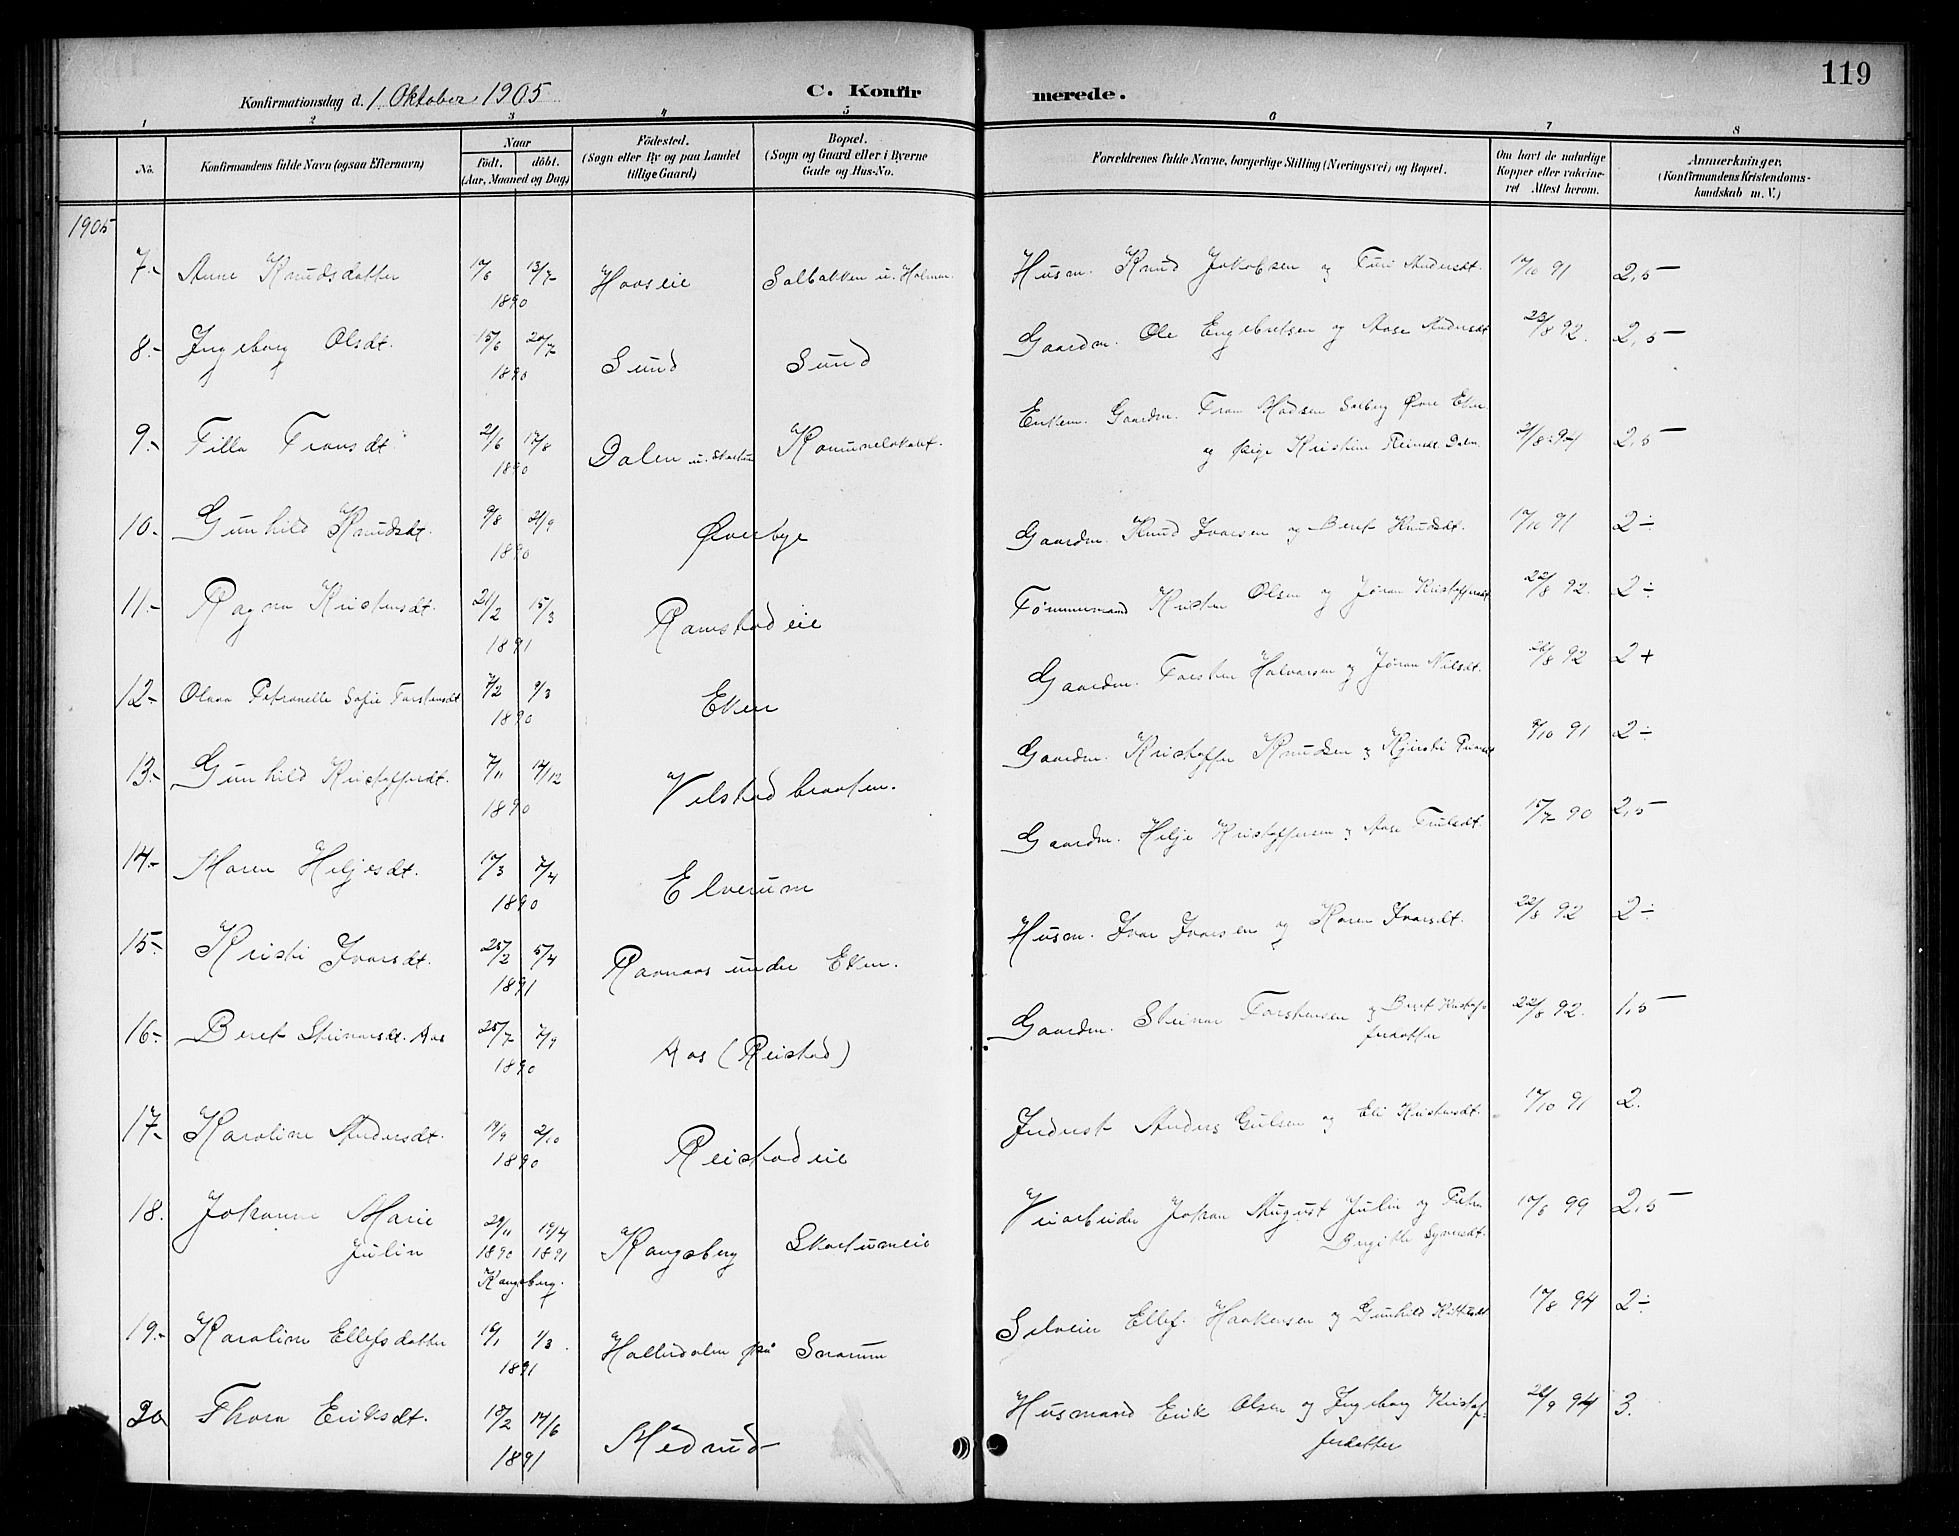 119
Konfirmationsdag d. 1 Oktober 1905
C. Konfirmerede.
1 2 3 4 5 6 7 8
No.
Konfirmandens fulde Navn (ogsaa Efternavn)
Naar
födt. döbt.
(Aar, Maaned og Dag)
Födested.
(Sogn eller By og paa Landet
tillige Gaard)
Bopæl.
(Sogn og Gaard eller i Byerne
Gade og Hus-No.
Forældrenes fulde Navne, borgerlige Stilling (Næringsvei) og Bopæl.
Om havt de naturlige
Kopper eller vakcine-
ret Attest herom.
Anmærkninger.
(Konfirmandens Kristendoms-
kundskab m. V.)
1905
7.- Anne Knudsdatter 17/6 13/7 1890 Haaseie Solbakken u. Holmen Husm. Knud Jakobsen og Turi Andersdt. 17/10 91 2,5
8.- Ingeborg Olsdt. 15/6 20/7 1890 Sund Sund Gaardm. Ole Engebretsen og Aase Andersdt 23/8 92. 2,5
9.- Tilla Fransdt. 2/6 17/8 1890 Dalen u. Skartum Enkem. Gaardm. Fran Madsen Solberg Øvre Eker
og pige Kristine Dalen 2/8 94 2,5
10.- Gunhild Knudsdt. 9/8 21/9 1890 Øverbye Gaardm. Knud Ivarsen og Beret Knudsdt. 17/10 91 2÷
11.- Ragna Kristensdt. 21/2 15/3 1891 Ramstadeie Tømmermand Kristen Olsen og Jøran Kristoffersdt 22/8 92. 2÷
12.- Olava Petronelle Sofie Torstensdt 7/2 9/3 1890 Eken Gaardm. Torsten Halvorsen og Jøran Nilsdt. 26/8 92 2+
13.- Gunhild Kristoffersdt. 7/11 14/12 1890 Velstadbraaten. Gaardm. Kristoffer Knudsen og Kjersti 9/10 91 2÷
14.- Maren Heljesdt. 17/3 7/4 1890 Elverum Gaardm. Helje Kristoffersen og Aase Trulsdt. 15/7 90 2,5
15.- Kristi Ivarsdt. 25/2 5/4 1891 Ravnaas under Eken. Husm. Ivar Ivarsen og Karen Ivarsdt. 22/8 92 2÷
16.- Beret Steinarsdt. Aas 25/7 7/9 1890 Aas (Reistad) Gaardm. Steinar Torstensen og Beret Kristof-
ferdatter 22/8 92. 1,5
17.- Karoline Andersdt. 19/9 2/10 1890 Reistadeie Inderst Anders Gulsen og Eli Kristensdt. 17/10 91 2.
18. Johanne Marie
Julin 29/11 1890 19/4 1891 Kongsberg. Kongsberg Skartumeie Veiarbeider Johan August Julin og Petra
Birgitte Syversdt. 17/6 99 2,5
19.- Karoline Ellefsdatter 10/1 1/3 1891 Hallerdalen på Snarum Selveier Ellef Haakensen og Gunhild Kittelsdt 17/8 94 2÷
20 Thora Eriksdt. 18/2 14/6 1891 Medrud Husmand Erik Olsen og Ingeborg Kristof-
ferdatter 26/9 94 3.